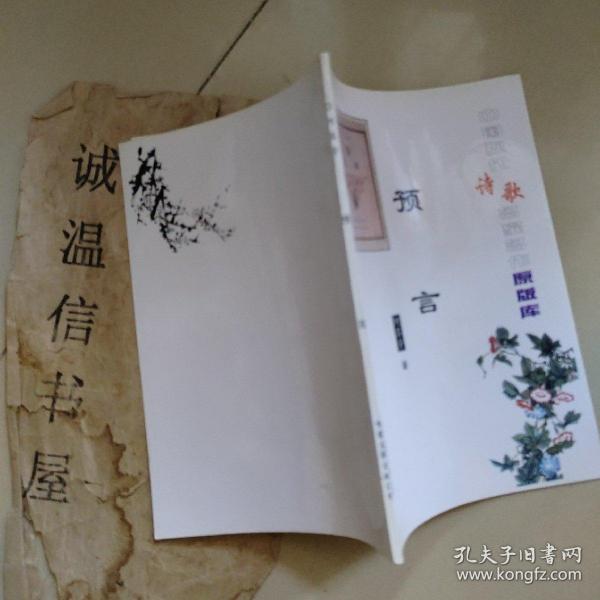 诚温信书屋
中国现代
诗歌
名家名作
原版库
预言
著
孔夫子旧书网
www.kongfz.com